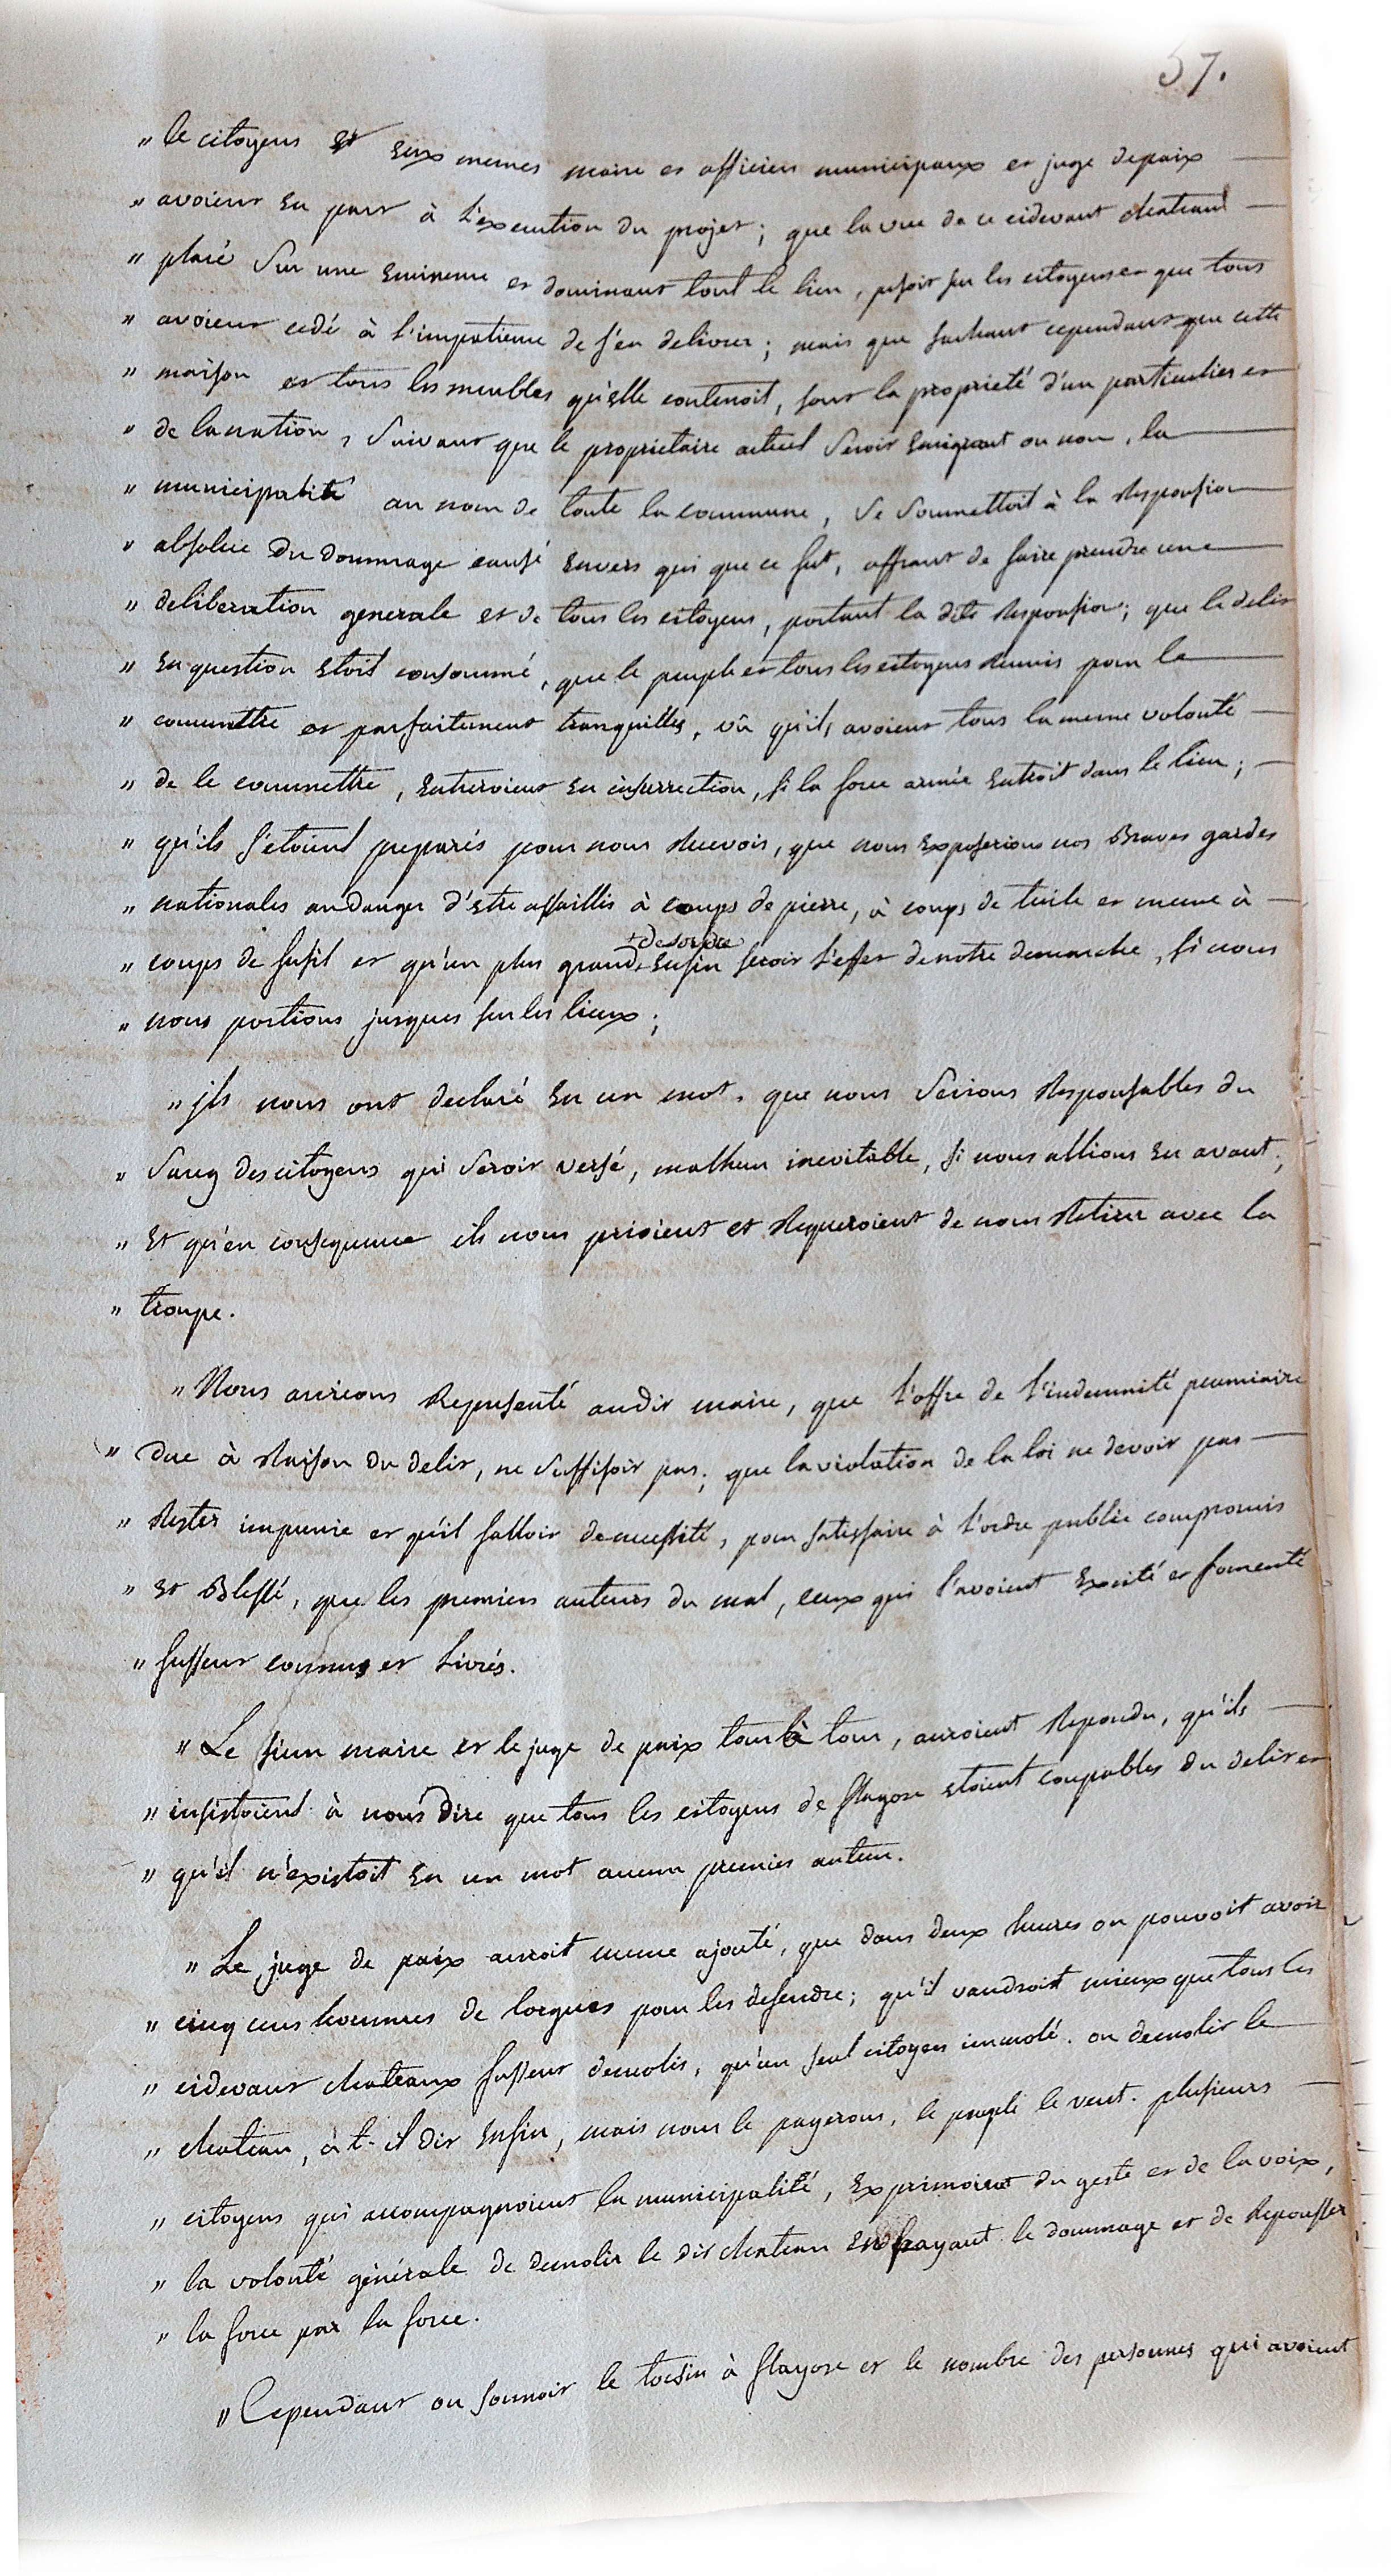 57.
" le citoyens et eux memes maire et officiers municipaux et juge depaix
" avoient eu part à l'execution du projet ; que la vue de ce cidevant chateau
" placé sur une eminence et dominant tout le lieu, pesoit sur les citoyens et que tous
" avoient cedé à l'impatience de s'en delivrer ; mais que sachant cependant que cette
" maison et tous les meubles qu'elle contenoit, sont la propriété d'un particulier et
" de la nation, suivant que le proprietaire actuel seroit emigrant ou non, la
" municipalité au nom de toute la commune, se soumettoit à la responsion
" absolue du dommage causé envers qui que ce fut, offrant de faire prendre une
" deliberation generale et de tous les citoyens, portant la dite responsion ; que le delit
" en question etoit consommé, que le peuple et tous les citoyens reunis pour le
" commettre et parfaitement tranquilles, vû qu'ils avoient tous la meme volonté
" de le commettre, entreroient en insurrection, si la force armée entroit dans le lieu ;
" qu'ils s'etoient preparés pour nous recevoir, que nous exposerions nos Braves gardes
" nationales au danger d'etre assaillis à coups de pierre, à coups de tuile et meme à
+ desordre
" coups de fusil et qu'un plus grand + enfin seroit l'effet de notre demarche, si nous
" nous portions jusques sur les lieux ;
" ils nous ont declaré en un mot, que nous serions responsables du
" sang des citoyens qui seroit versé, malheur inevitable, si nous allions en avant ;
" Et qu'en consequence ils nous prioient et requeroient de nous retirer avec la
" troupe.
" Nous aurions representé audit maire, que l'offre de l'indemnité pecuniaire
" due à raison du delit, ne suffisoit pas ; que la violation de la loi ne devoit pas
" rester impunie et qu'il falloit de necessité, pour satisfaire à l'ordre public compromis
" et Blessé, que les premiers auteurs du mal, ceux qui l'avoient excité et fomenté
" fussent connus et livrés.
" Le sieur maire et le juge de paix tour à tour, auroient repondu, qu'ils
" insistoient à nous dire que tous les citoyens de flayosc etoient coupables du delit et
" qu'il n'existoit en un mot aucun premier auteur.
" Le juge de paix auroit meme ajouté, que dans deux heures on pouvoit avoir
" cinq cens hommes de lorgues pour les defendre ; qu'il vaudroit mieux que tous les
" cidevant chateaux fussent demolis, qu'un seul citoyen immolé. on demolir le
" chateau, à t-il dit enfin, mais nous le payerons, le peuple le veut. plusieurs
" citoyens qui accompagnoient la municipalité, exprimoient du geste et de la voix,
" la volonté générale de demolir le dit chateau en payant le dommage et de repousser
" la force par la force.
" Cependant on sonnoit le tocsin à flayosc et le nombre des personnes qui avoient